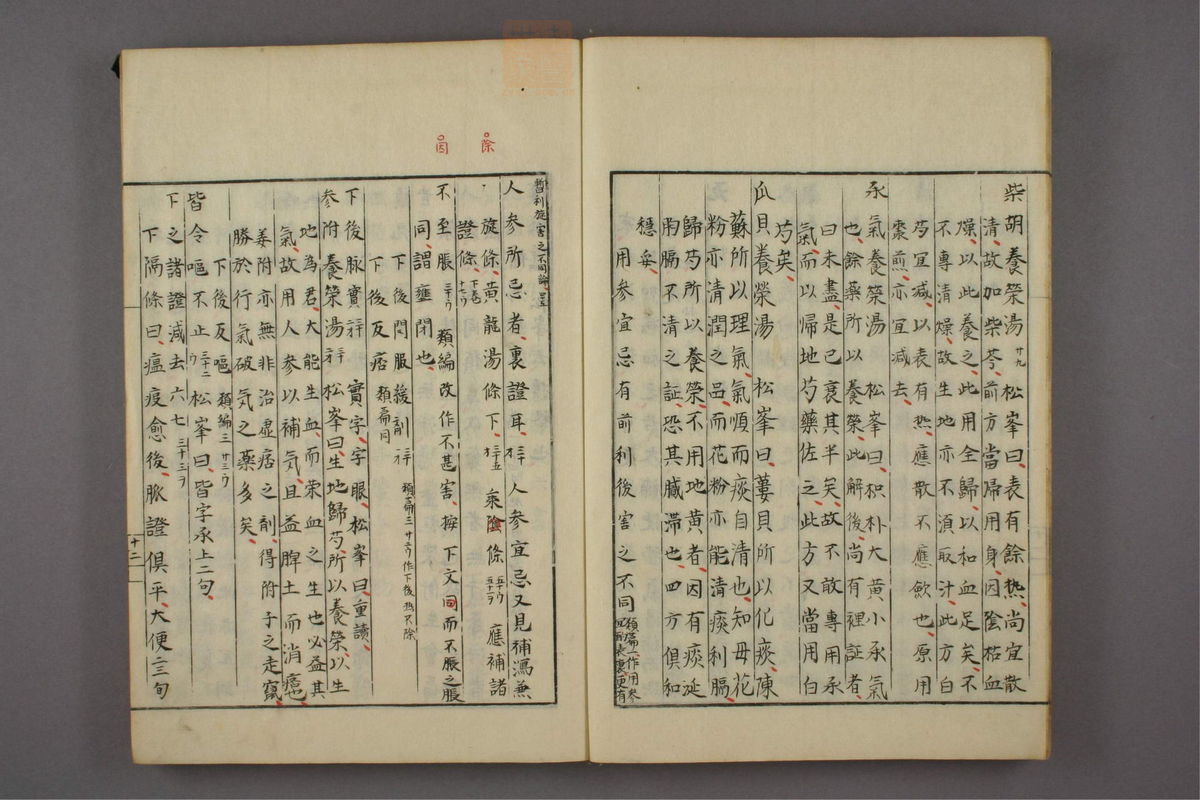 柴胡養榮湯 廿九 松峯曰表有餘热尚宜散
清故加柴芩前方當帰用身因陰枯血
燥以此養之此用全歸以和血足矣不
不專清燥故生地亦湏取汁此方白
芍宜减以表有热應散不應歛也原用
棗煎亦宜减去
承氣養榮湯 松峯曰枳朴大黄小承氣
也餘藥所以養榮此解後尚有裡証者
曰未盡是已衰其半矣故不敢專用承
氣而以帰地芍藥佐之此方又當用白
芍矣
瓜貝養榮湯 松峯曰蔞貝所以化痰陳
蘇所以理氣氣順而痰自清也知母花
粉亦清潤之品而花粉亦能清痰利膈
歸芍所以養榮不用地黄者因有痰涎
胷膈不清之証恐其膩滞也四方俱和
穩妥
用參宜忌有前利後害之不同 類編二作用参
暫利旋害之不同論
人參所忌者裏證耳 人參宜忌又見補瀉兼
旋條黄龍湯條下 乘陰條 應補諸
證條
不至脹 類編改作不甚害 按下文同而不脹之脹
同謂壅閉也
下後悶服緩剤 類編三 作下後热不除
下後反痞 類編同
下後脉實 實字字眼松峯曰重讀
參附養榮湯 松峯曰生地歸芍所以養榮以生
地為君大能生血而荣血之生也必益其
氣故用人參以補气且益脾土而消痞也
姜附亦無非治虚痞之剤得附子之走竄
勝於行氣破気之藥多矣
下後反嘔 類編三
皆令嘔不止 松峯曰皆字承上二句
下之諸證减去六七
下隔條曰瘟疫愈後脈證俱平大便二三旬
除
圊
十二